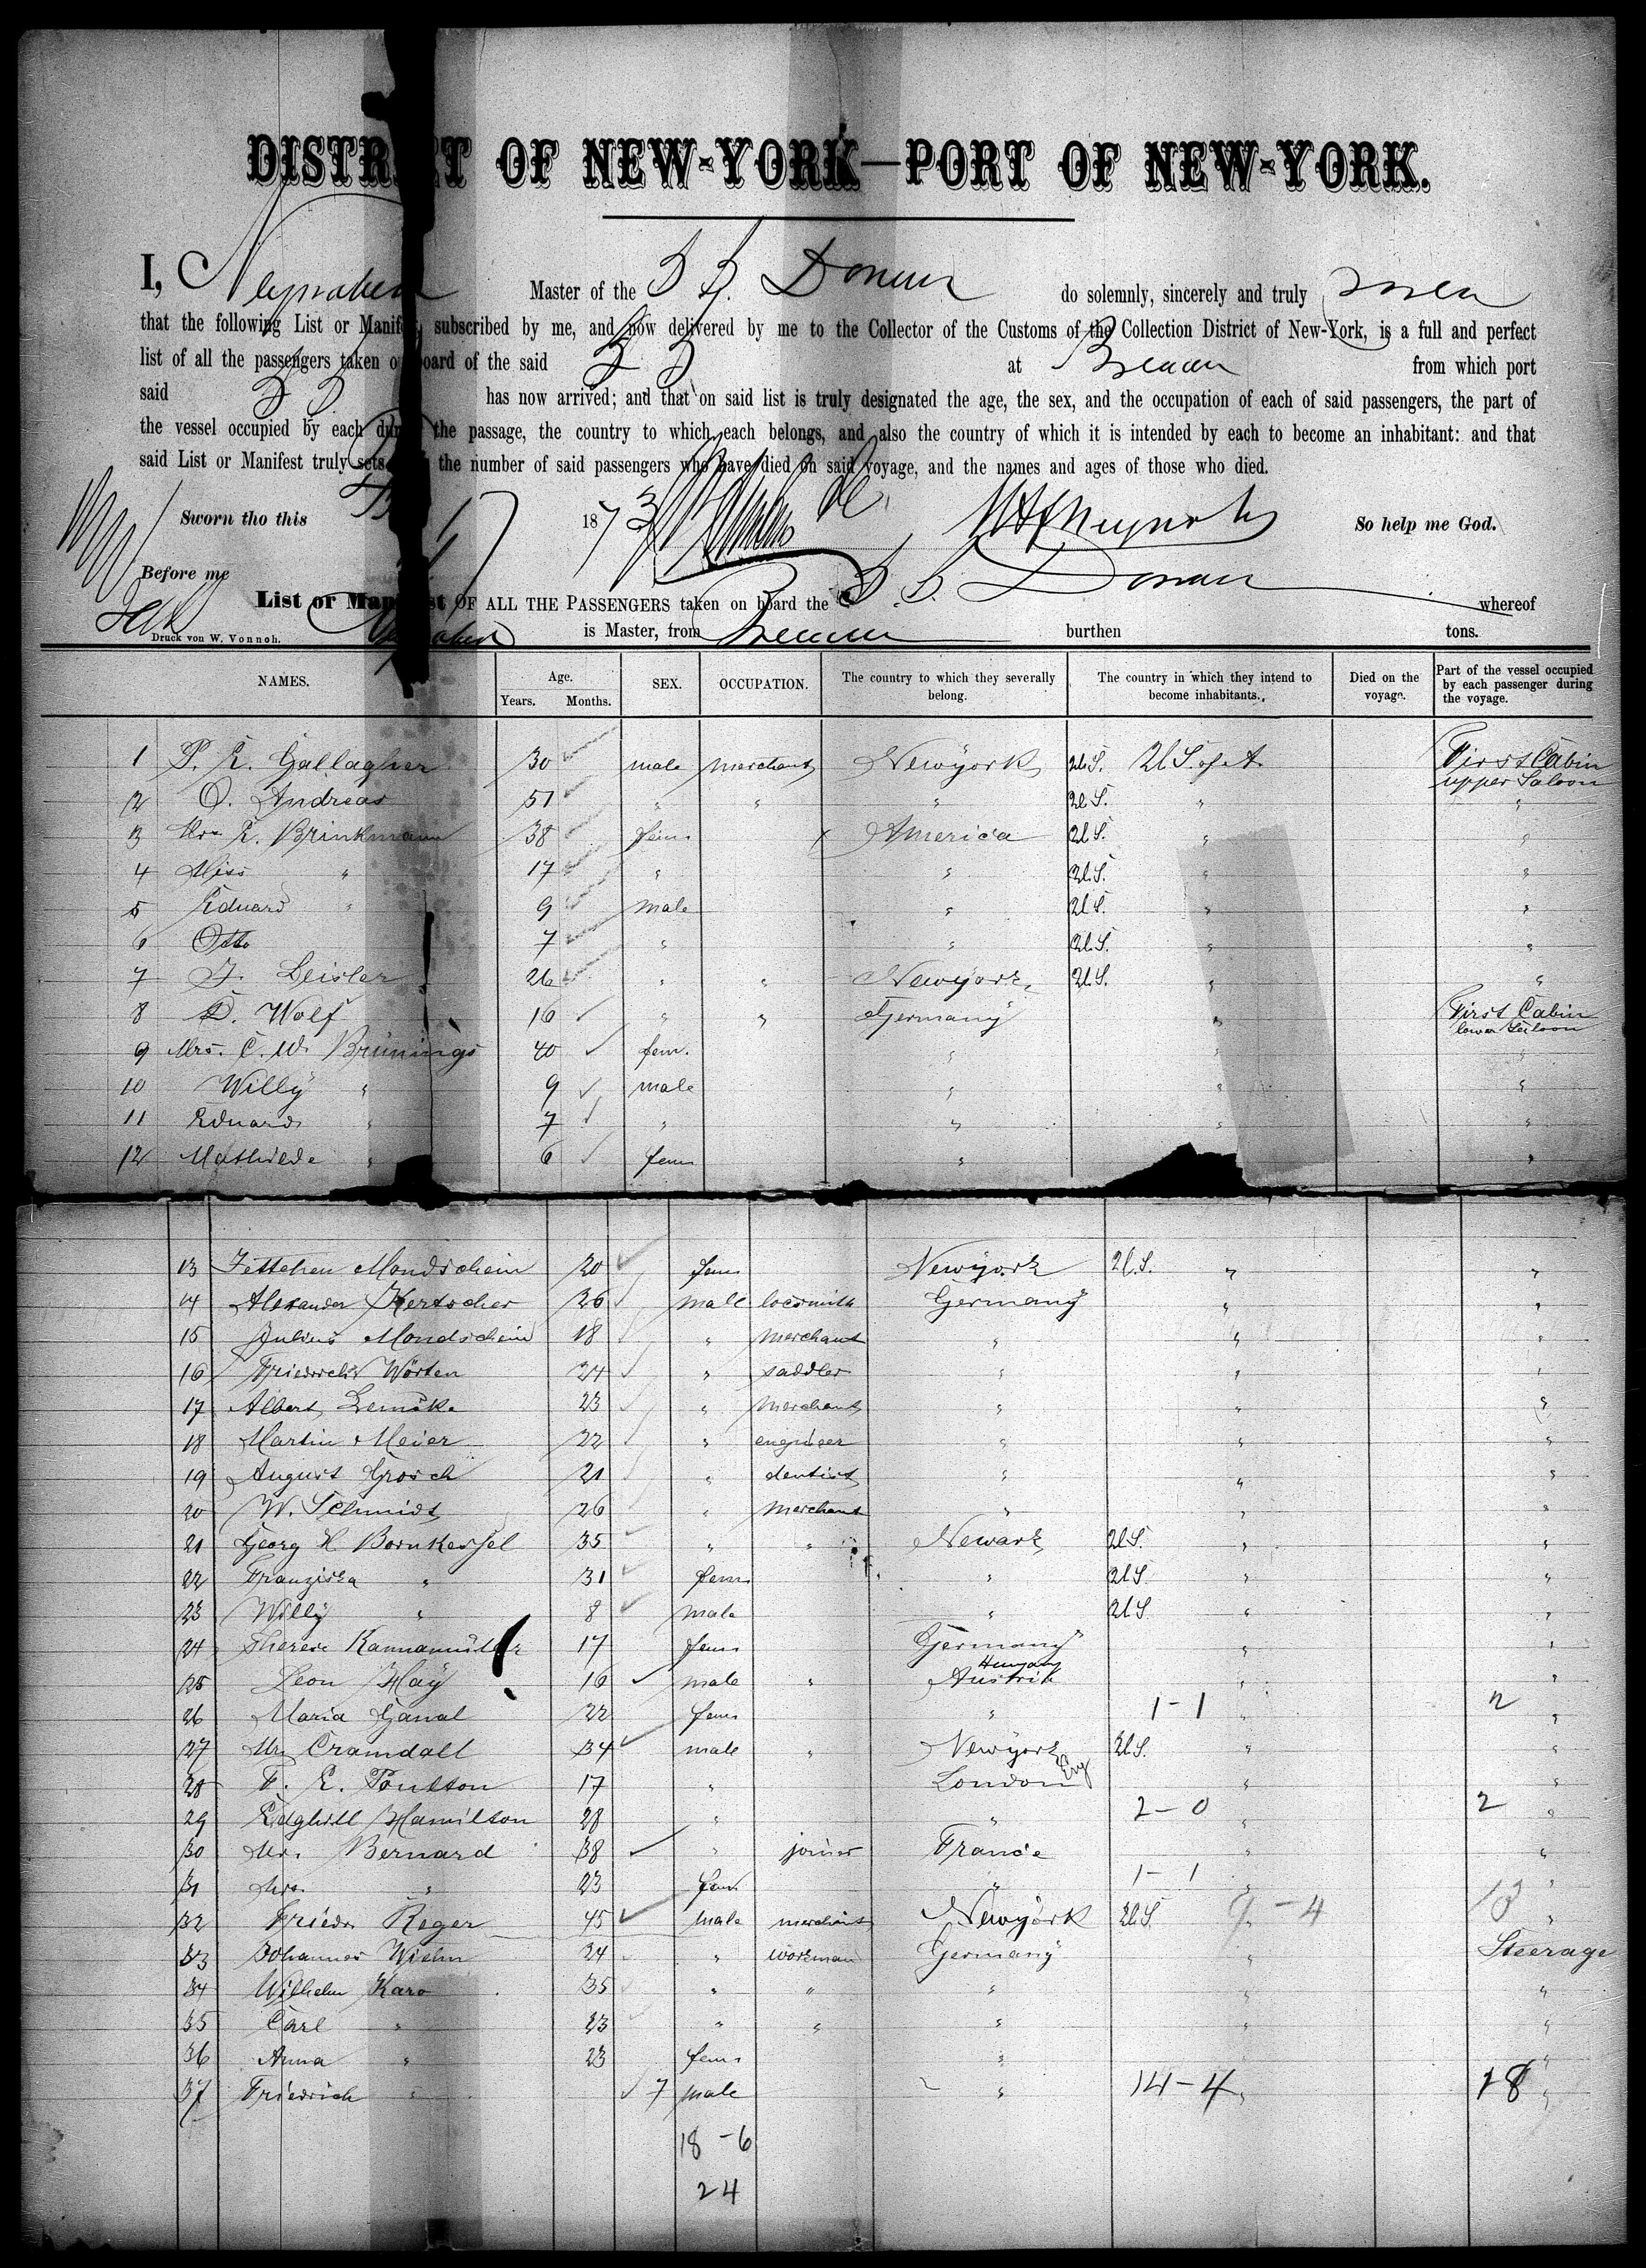 DISTRICT OF NEW-YORK—PORT OF NEW-YORK.
I, Neynaber Master of the S. S. Donau do solemnly, sincerely and truly swear
that the following List or Manifest, subscribed by me, and now delivered by me to the Collector of the Customs of the Collection District of New-York, is a full and perfect
list of all the passengers taken on board of the said S S at Bremen from which port
said S S has now arrived; and that on said list is truly designated the age, the sex, and the occupation of each of said passengers, the part of
the vessel occupied by each during the passage, the country to which each belongs, and also the country of which it is intended by each to become an inhabitant: and that
said List or Manifest truly sets the number of said passengers who have died on said voyage, and the names and ages of those who died.
Sworn tho this 1873 So help me God.
Before me
List or Manifest OF ALL THE PASSENGERS taken on board the S. S. Donau whereof
Druck von W. Vonnoh. Neynaber is Master, from Bremen burthen tons.
NAMES. Age. Years. Months. SEX. OCCUPATION. The country to which they severally belong. The country in which they intend to become inhabitants. Died on the voyage. Part of the vessel occupied by each passenger during the voyage.
1 P. E. Gallagher 30 male merchant Newyork U.S. U.S. of A. First Cabin upper Saloon
2 O. Andreas 51 " " " U.S. " "
3 Mrs E. Brinkmann 38 fem America U.S. " "
4 Miss " 17 " " U.S. " "
5 Eduard " 9 male " U.S. " "
6 Otto 7 " " U.S. " "
7 F. Leisler 26 " " Newyork U.S. " "
8 D. Wolf 16 " " Germany " First Cabin lower Saloon
9 Mrs. C. W. Brünings 40 fem. " " "
10 Willy " 9 male " " "
11 Eduard " 7 " " " "
12 Mathilde " 6 fem " "
13 Jettchen Mondschein 20 fem Newyork U.S. " "
14 Alexander Kertscher 26 male locksmith Germany " "
15 Julius Mondschein 18 " merchant " " "
16 Friedrich Wörten 24 " saddler " " "
17 Albert Lemcke 23 " merchant " " "
18 Martin Meier 22 " engineer " " "
19 August Grosch 21 " dentist " " "
20 W. Schmidt 26 " merchant " " "
21 Georg H Bornkessel 35 " " Newark U.S. " "
22 Franziska " 31 fem " U.S. " "
23 Willy " 8 male " U.S. " "
24 Therese Kammermüller 17 fem Germany " "
25 Leon Hay 16 male " Hungary Austria " "
26 Maria Ganal 22 fem " 1-1 " 2 "
27 Mr Cramdall 34 male " Newyork U.S. " "
28 F. E. Poulton 17 " London Eng " "
29 Edghill Hamilton 28 " " 2-0 " 2 "
30 Mr. Bernard 38 " joiner France " "
31 Mrs. " 23 fem " 1-1 " "
32 Friedr. Reger 45 male merchant Newyork U.S. 9-4 " 13 "
33 Johannes Wiehn 24 " workman Germany " Steerage
34 Wilhelm Karo 35 " " " " "
35 Carl " 23 " " " " "
36 Anna " 23 fem " " "
37 Friedrich " 7 male " 14-4 " 18 "
18-6
24